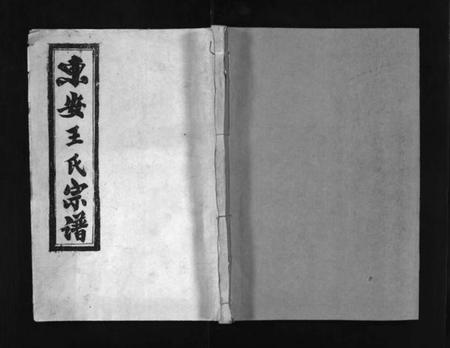 東安王氏宗谱